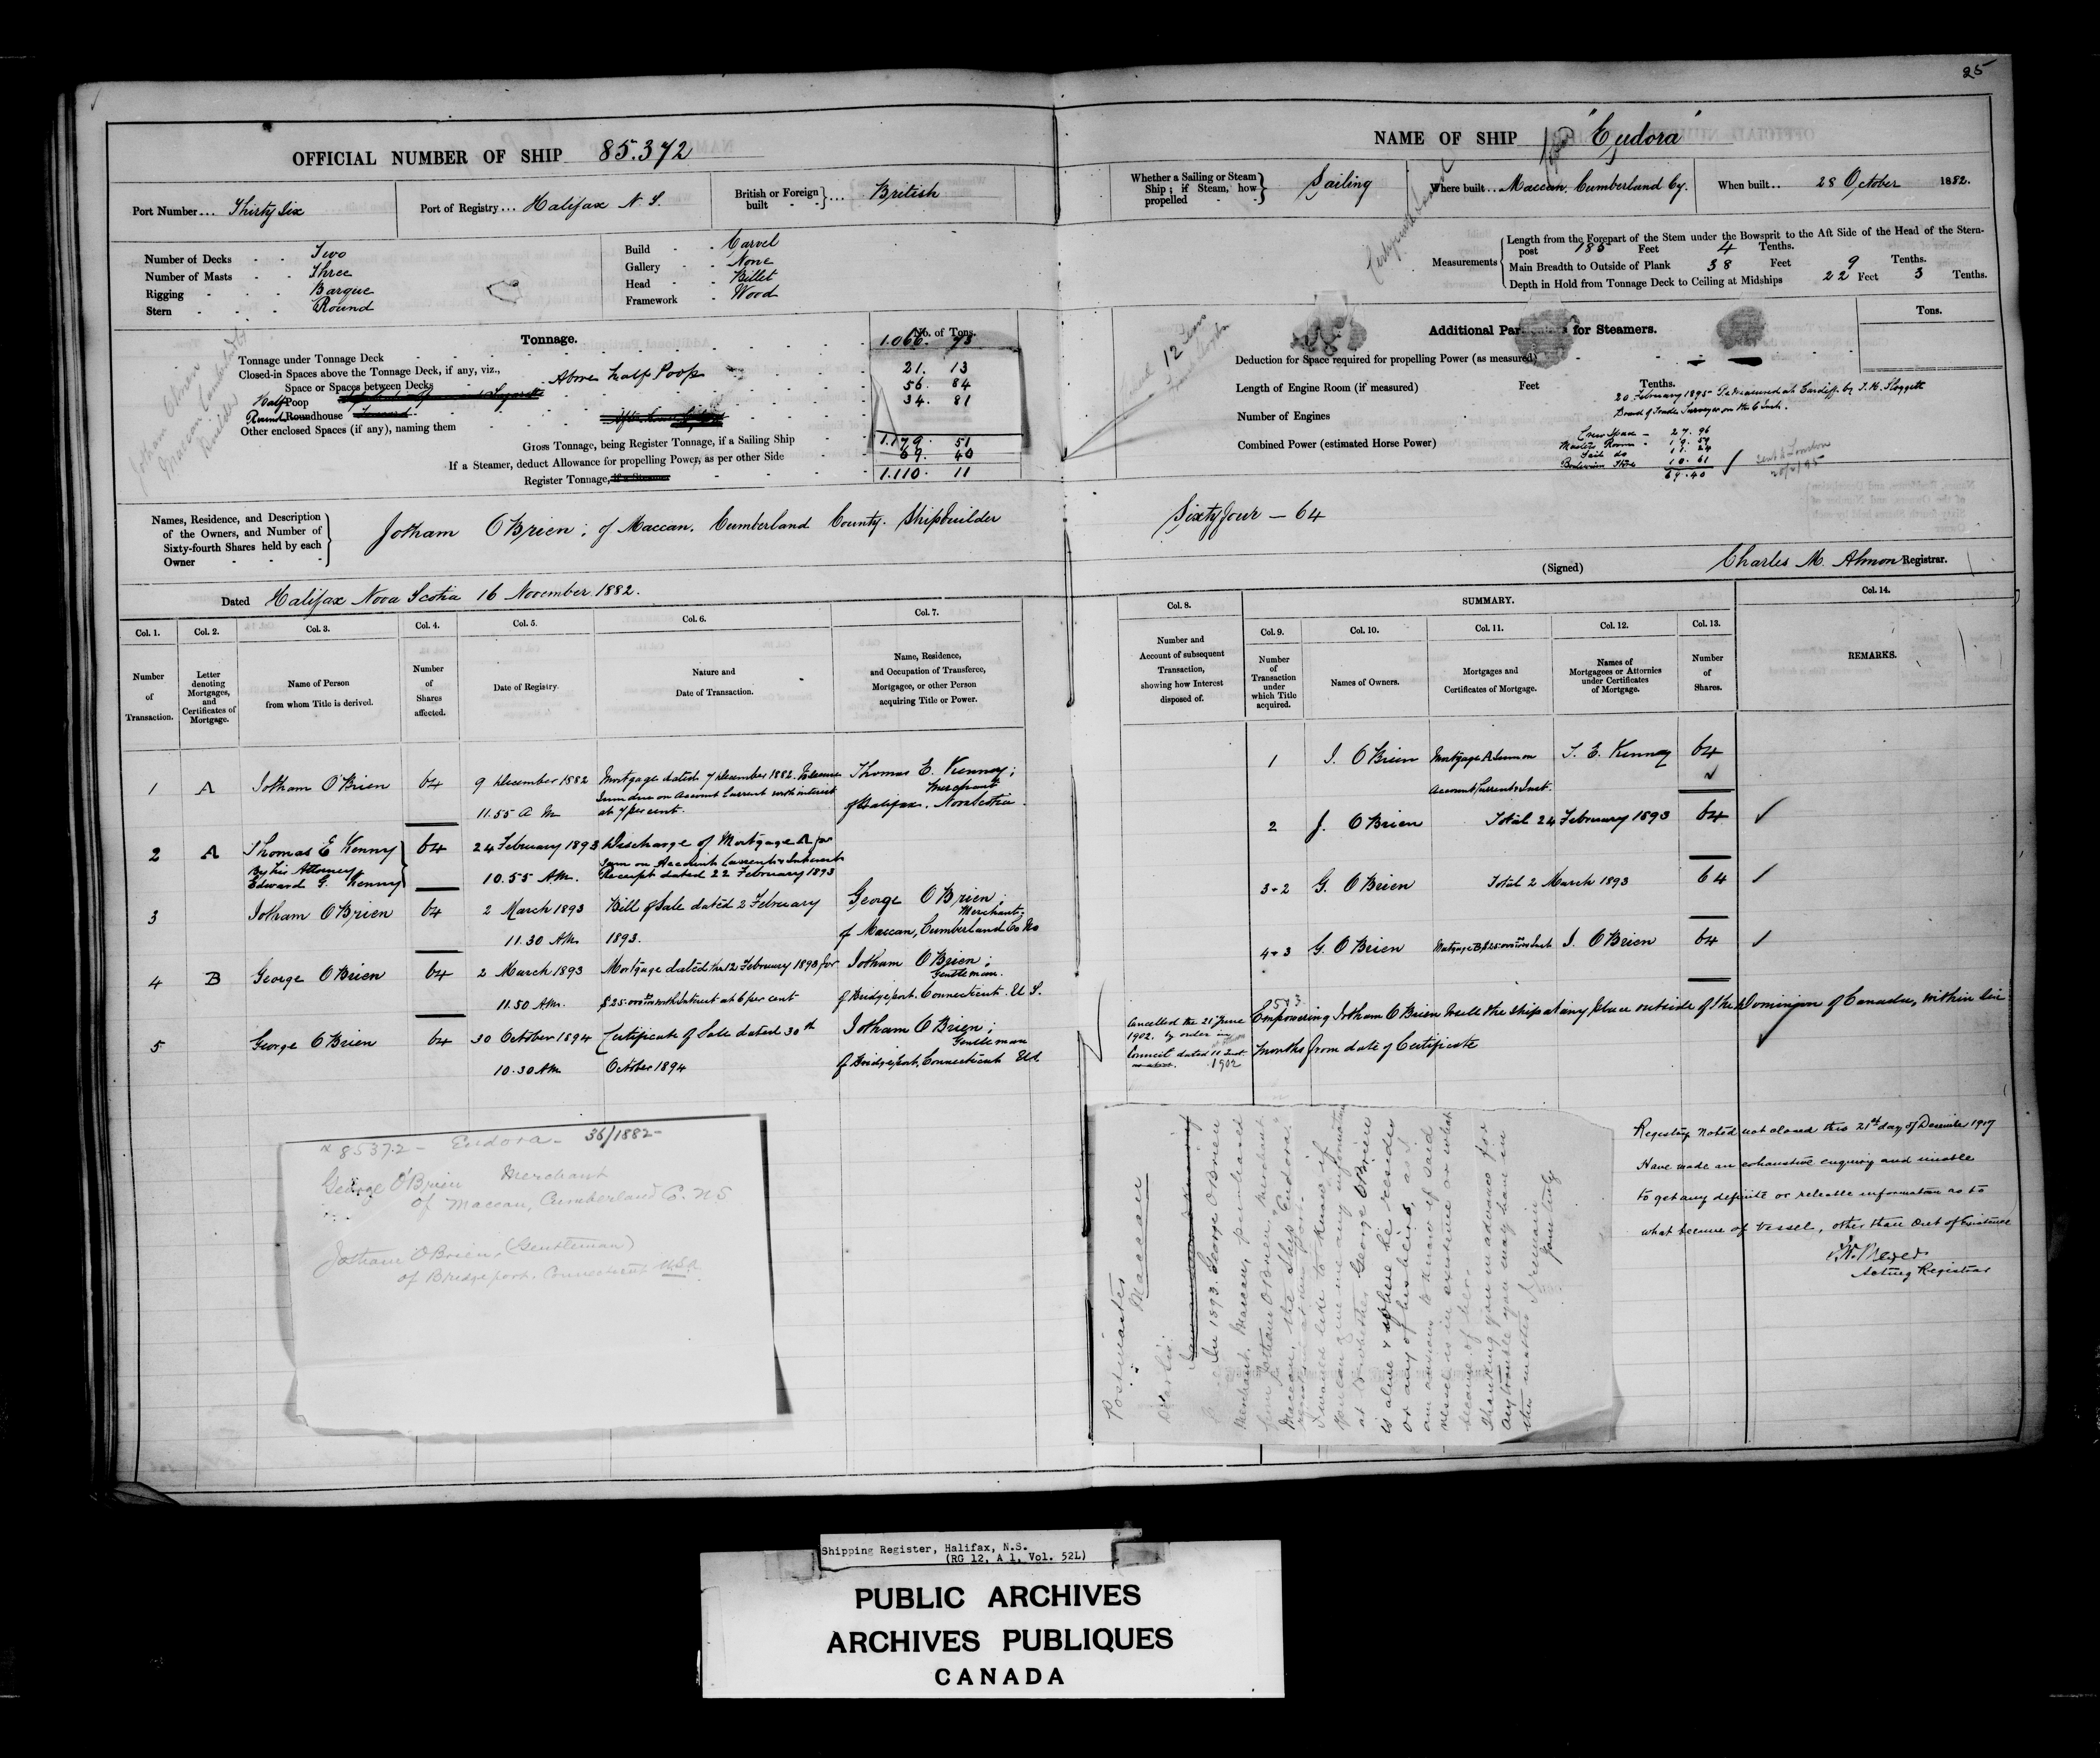 25
OFFICIAL NUMBER OF SHIP 85.372
NAME OF SHIP "Eudora"
Port Number... Thirty Six
Port of Registry... Halifax N.S.
British or Foreign built } ... British
Whether a Sailing or Steam Ship; if Steam, how propelled } Sailing
Where built... Maccan, Cumberland Cy.
When built... 28 October 1882.
Number of Decks Two
Number of Masts Three
Rigging Barque
Stern Round
Build Carvel
Gallery None
Head Billet
Framework Wood
Measurements
Length from the Forepart of the Stem under the Bowsprit to the Aft Side of the Head of the Stern-
post 185 Feet 4 Tenths.
Main Breadth to Outside of Plank 38 Feet 9 Tenths.
Depth in Hold from Tonnage Deck to Ceiling at Midships 22 Feet 3 Tenths.
Tonnage. No. of Tons.
Tonnage under Tonnage Deck 1.066. 73
Closed-in Spaces above the Tonnage Deck, if any, viz.,
Space or Spaces between Decks Above half Poop 21. 13
Half Poop 56. 84
Round Roundhouse 34. 81
Other enclosed Spaces (if any), naming them
Gross Tonnage, being Register Tonnage, if a Sailing Ship 1.179. 51
If a Steamer, deduct Allowance for propelling Power, as per other Side 69. 40
Register Tonnage, if a Steamer 1.110. 11
Jotham OBrien
Maccan Cumberland
Builder
Additional Particulars for Steamers. Tons.
Deduction for Space required for propelling Power (as measured)
Length of Engine Room (if measured) Feet Tenths.
Number of Engines
Combined Power (estimated Horse Power)
20 February 1895 Remeasured at Cardiff by J. H. Sloggett
Board of Trade Surveyor on the 6 Inst.
Crew Space 27. 96
Masters Room
Sail do
Boatswain Store 10. 61
69.40
Sent to London
Names, Residence, and Description of the Owners, and Number of Sixty-fourth Shares held by each Owner
Jotham OBrien; of Maccan. Cumberland County. Shipbuilder
Sixty four — 64
Dated Halifax Nova Scotia 16 November 1882.
(Signed) Charles M. Almon Registrar.
Col. 1. Col. 2. Col. 3. Col. 4. Col. 5. Col. 6. Col. 7.
Number of Transaction.
Letter denoting Mortgages, and Certificates of Mortgage.
Name of Person from whom Title is derived.
Number of Shares affected.
Date of Registry.
Nature and Date of Transaction.
Name, Residence, and Occupation of Transferee, Mortgagee, or other Person acquiring Title or Power.
Col. 8. SUMMARY. Col. 14.
Col. 9. Col. 10. Col. 11. Col. 12. Col. 13.
Number and Account of subsequent Transaction, showing how Interest disposed of.
Number of Transaction under which Title acquired.
Names of Owners.
Mortgages and Certificates of Mortgage.
Names of Mortgagees or Attornies under Certificates of Mortgage.
Number of Shares.
REMARKS.
1 A Jotham OBrien 64 9 December 1882 Mortgage dated 7 December 1882. To secure Thomas E. Kenney;
Sum due on Account Current with interest Merchant
11.55 A M at 7 per cent. of Halifax. Nova Scotia.
2 A Thomas E Kenny 64 24 February 1893 Discharge of Mortgage A for
by his Attorney Sum on Account Current & Interest
Edward G. Kenny 10.55 AM. Receipt dated 22 February 1893
3 Jotham OBrien 64 2 March 1893 Bill of Sale dated 2 February George OBrien;
Merchant;
11.30 AM. 1893. of Maccan, Cumberland Co NS
4 B George OBrien 64 2 March 1893 Mortgage dated the 12 February 1893 for Jotham OBrien;
Gentleman.
11.50 AM. $25.000.00 with Interest at 6 per cent of Bridgeport. Connecticut. U S.
5 George OBrien 64 30 October 1894 Certificate of Sale dated 30th Jotham OBrien;
Gentleman
10.30 AM October 1894 of Bridgeport, Connecticut US
1 J. OBrien Mortgage A Sum on T. E. Kenney 64
Account Current & Int.
2 J. OBrien Total 24 February 1893 64
3-2 G. OBrien Total 2 March 1893 64
4-3 G. OBrien Mortgage B $25.000.00 Int J. OBrien 64
5-3
Empowering Jotham OBrien to sell the ship at any place outside of the Dominion of Canada, within six
months from date of Certificate
Cancelled the 21 June
1902. by order in
Council dated 11 Inst.
1902
85372 - Eudora - 36/1882 -
George O'Brien Merchant
of Maccan, Cumberland Co. NS
Jotham O'Brien, (Gentleman)
of Bridgeport. Connecticut USA
Postmaster
Maccan
Dear Sir
In 1893. George O'Brien
Merchant. Maccan, purchased
from Jotham O'Brien, Merchant
Maccan, the Ship "Eudora"
I would like to know if
you can give me any information
as to whether George O'Brien
is alive & where he resides
or any of his heirs, as I
am anxious to know if said
vessel is in existence or what
became of her.
Thanking you in advance for
any trouble you may have in
this matter I remain
yours truly
Registry noted not closed this 21st day of December 1917
Have made an exhaustive enquiry and unable
to get any definite or reliable information as to
what became of Vessel, other than out of existence
Acting Registrar
Shipping Register, Halifax, N.S.
(RG 12, A 1, Vol. 52L)
PUBLIC ARCHIVES
ARCHIVES PUBLIQUES
CANADA